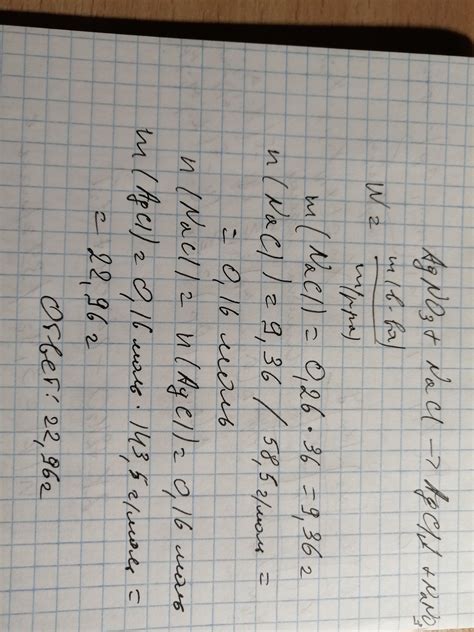 AgNO₃ + NaCl → AgCl↓ + NaNO₃
W = m(в-ва)
m(р-ра)
m(NaCl) = 0,26 · 36 = 9,36 г
n(NaCl) = 9,36 / 58,5 г/моль =
= 0,16 моль
n(NaCl) = n(AgCl) = 0,16 моль
m(AgCl) = 0,16 моль · 143,5 г/моль =
= 22,96 г
Ответ: 22,96 г